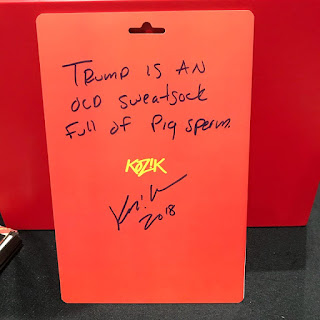 Trump is an
old sweatsock
full of pig sperm.
KOZIK
2018